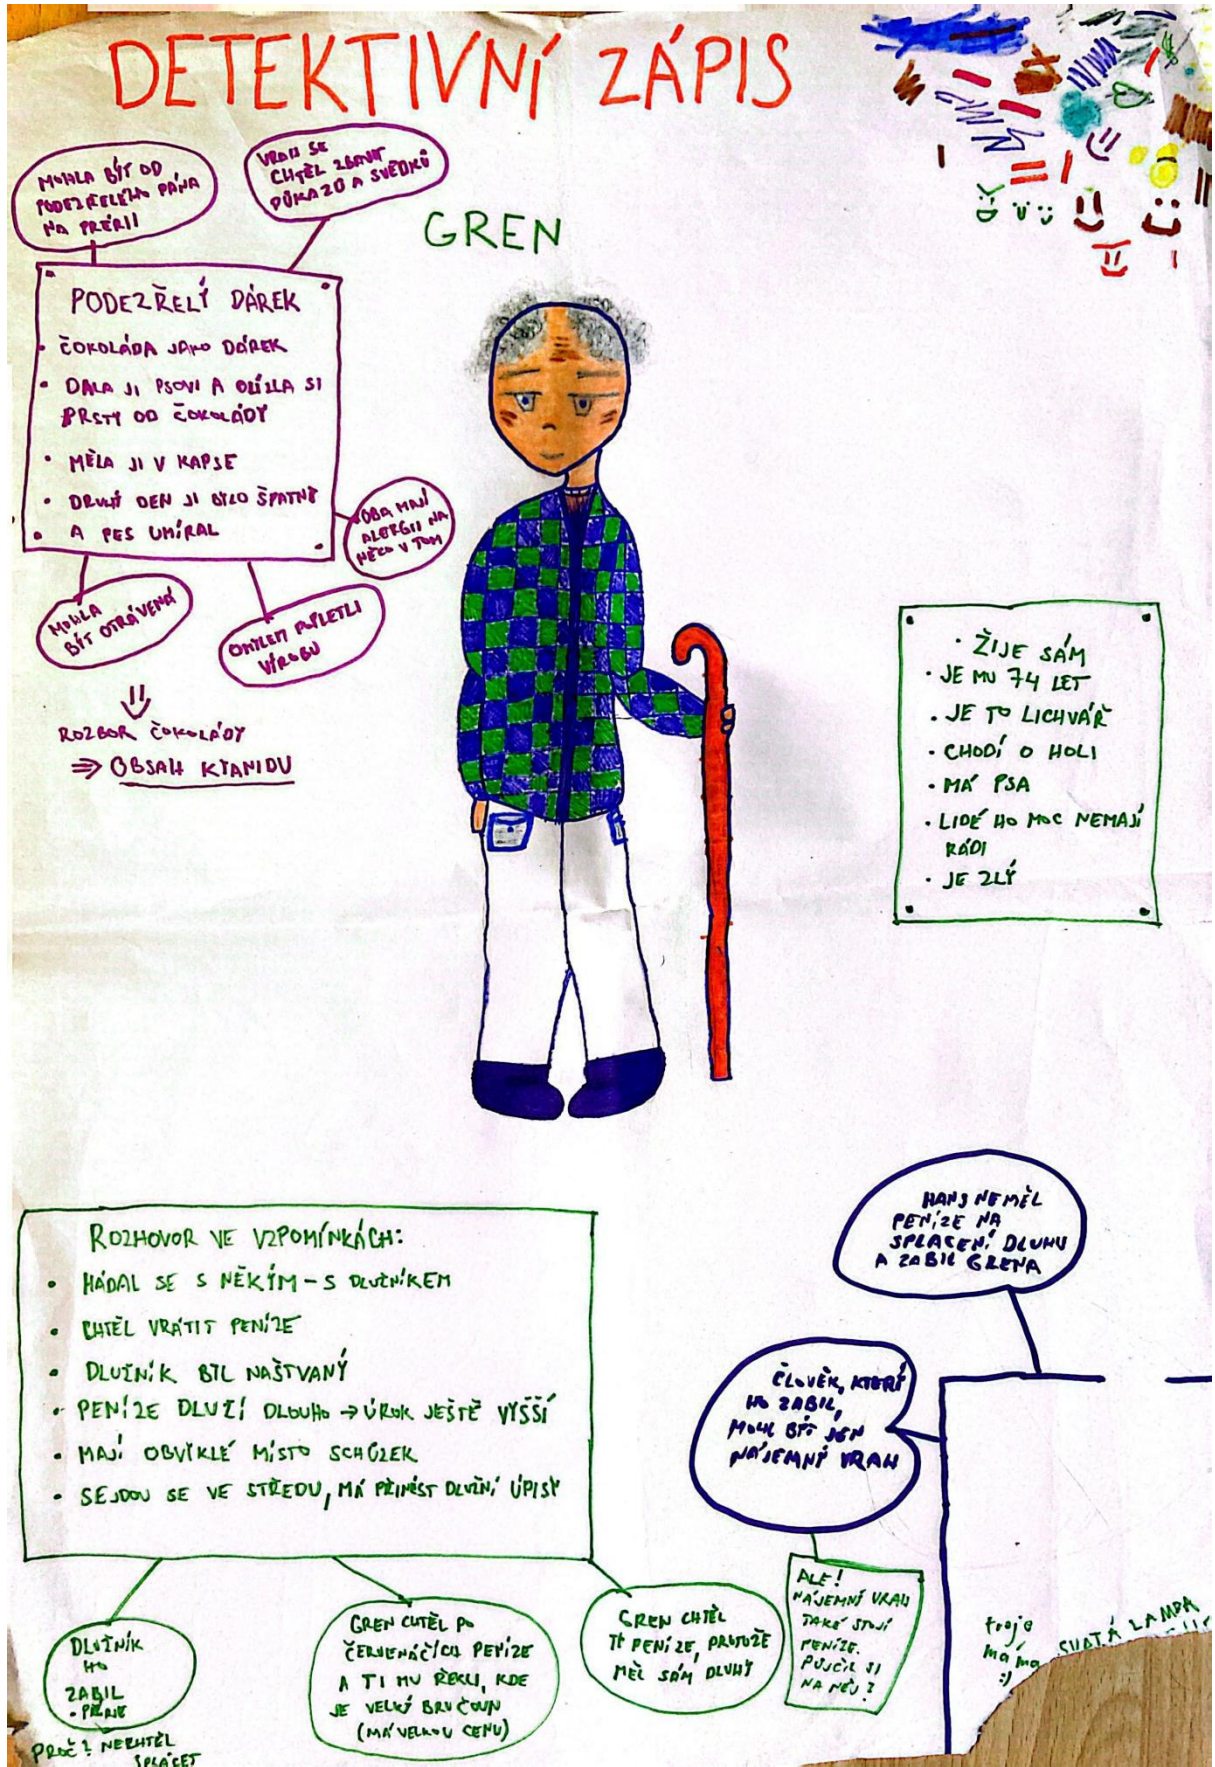 DETEKTIVNÍ ZÁPIS
MOHLA BÝT OD
PODEZŘELÉHO PÁNA
NA PRÉRII
VRAH SE
CHTĚL ZBAVIT
DŮKAZŮ A SVĚDKŮ
GREN
PODEZŘELÝ DÁREK
• ČOKOLÁDA JAKO DÁREK
• DALA JI PSOVI A OLÍZLA SI
PRSTY OD ČOKOLÁDY
• MĚLA JI V KAPSE
• DRUHÝ DEN JI BYLO ŠPATNĚ
A PES UMÍRAL
OBA MAJÍ
ALERGII NA
NĚCO V TOM
MOHLA
BÝT OTRÁVENÁ
OMYLEM POPLETLI
VÝROBU
ROZBOR ČOKOLÁDY
⇒ OBSAH KYANIDU
• ŽIJE SÁM
• JE MU 74 LET
• JE TO LICHVÁŘ
• CHODÍ O HOLI
• MÁ PSA
• LIDÉ HO MOC NEMAJÍ
RÁDI
• JE ZLÝ
ROZHOVOR VE VZPOMÍNKÁCH:
• HÁDAL SE S NĚKÝM – S DLUŽNÍKEM
• CHTĚL VRÁTIT PENÍZE
• DLUŽNÍK BYL NAŠTVANÝ
• PENÍZE DLUŽÍ DLOUHO → ÚROK JEŠTĚ VYŠŠÍ
• MAJÍ OBVYKLÉ MÍSTO SCHŮZEK
• SEJDOU SE VE STŘEDU, MÁ PŘINÉST DLUŽNÍ ÚPISY
DLUŽNÍK
HO
ZABIL
PROČ? NECHTĚL
SPLÁCET
GREN CHTĚL PO
ČERVENÁČCÍCH PENÍZE
A TI MU ŘEKLI, KDE
JE VELKÝ BRUČOUN
(MÁ VELKOU CENU)
GREN CHTĚL
TY PENÍZE, PROTOŽE
MĚL SÁM DLUHY
HANS NEMĚL
PENÍZE NA
SPLACENÍ DLUHU
A ZABIL GRENA
ČLOVĚK, KTERÝ
HO ZABIL,
MOHL BÝT JEN
NÁJEMNÝ VRAH
ALE!
NÁJEMNÝ VRAH
TAKÉ STOJÍ
PENÍZE.
PŮJČIL SI
NA NĚJ?
tvoje
máma
:)
SVATÁ LAMPA